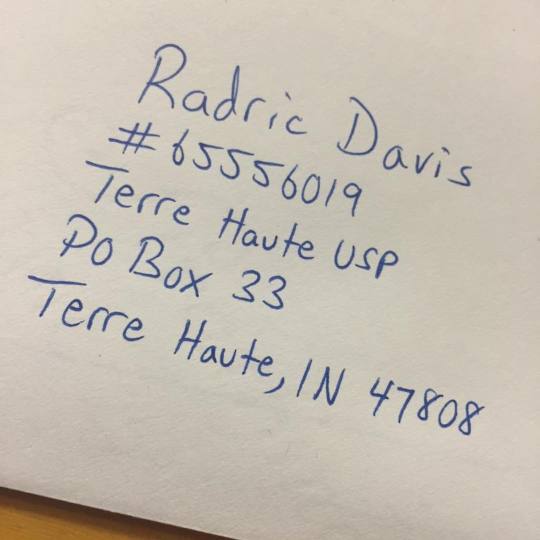 Radric Davis
#65556019
Terre Haute USP
PO Box 33
Terre Haute, IN 47808